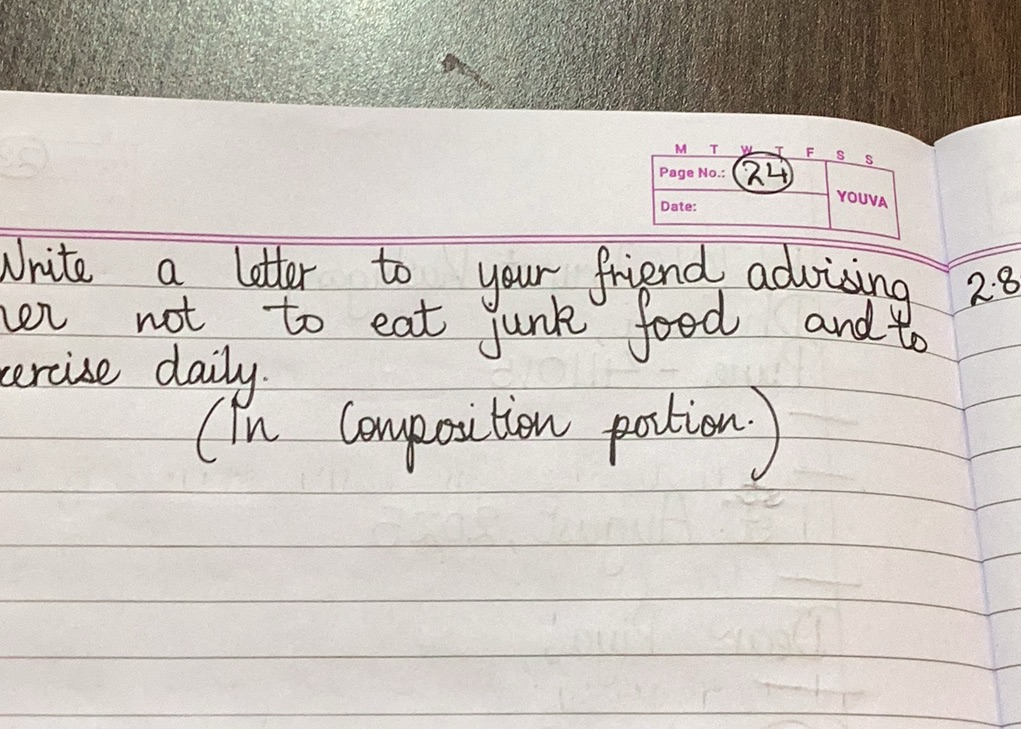 M T W T F S S
Page No.: 24
Date:
YOUVA
Write a letter to your friend advising
her not to eat junk food and to
xercise daily.
(In Composition portion.)
2.8